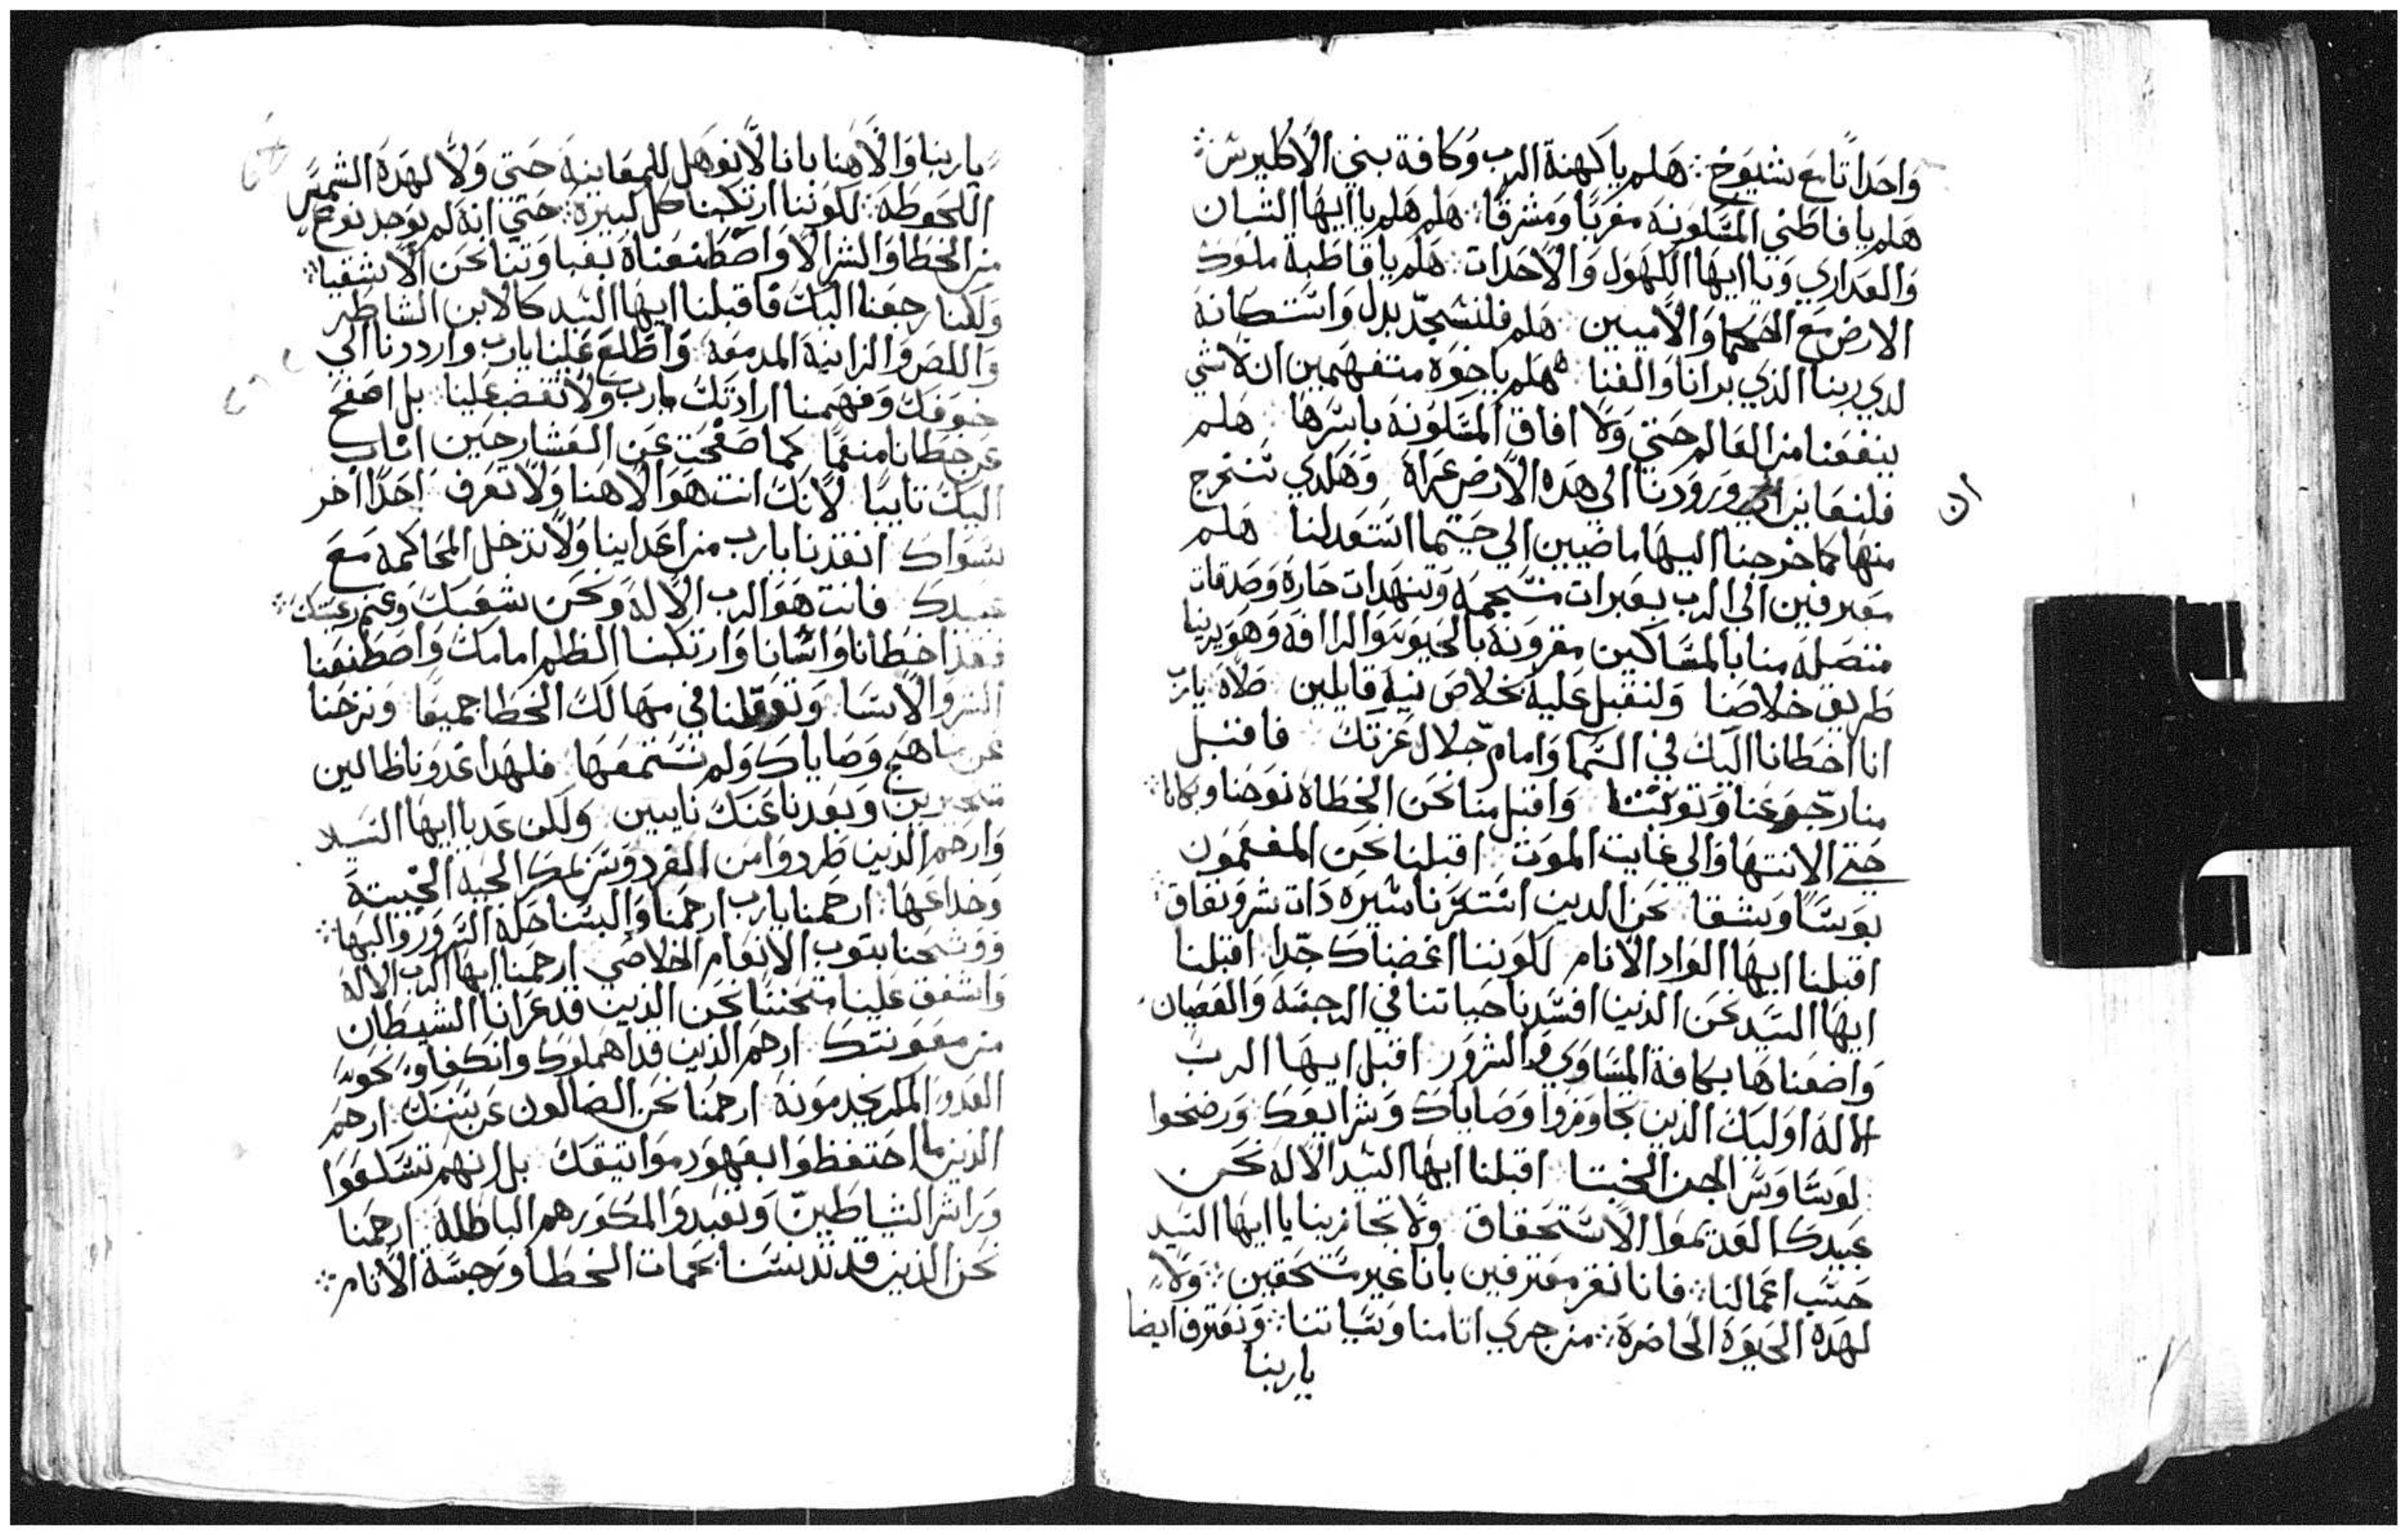 واحداً تابع شيوخ ∴ هلم يا كهنة الرب وكافة بني الاكليرس ∴
هلم يا قاطني المسكونه مغربًا ومشرقًا ∴ هلم هلم يا ايها الشبان
والعداري ويا ايها الكهول والاحدات ∴ هلم يا قاطبة ملوك
الارض مع الحكما والاميين ∴ هلم فلنسجد بدل واستكانه
لدي ربنا الذي برانا والفنا ∴ هلم يا خوه متفهمين ان لا شي
ينفعنا من العالم حتي ولا افاق المسكونه باسرها ∴ هلم
فلنعاين ورودنا الي هده الارض عراة وهكدي سنخرج
ان
منها كما خرجنا اليها ماضيين الي حيتما استعدلنا هلم
معترفين الي الرب بعبرات منسجمه وتنهدات حاره وصدقات
متصله منا بالمساكين مقرونه بالحيويه والرافه وهو يرينا
طريق خلاصنا ولنقبل عليه بخلاص نيه قايلين صلاه يارب
انا اخطانا اليك في السما وامام جلال عزتك فاقبل
منا رجوعنا وتوبتنا واقبل منا نحن الخطاه نوحنا وبكانا ∴
حتي الانتها والي غايت الموت اقبلنا نحن المفعمون
بوسًا وشقا نحن الدين استسرنا سيره دات شر ونفاق
اقبلنا ايها الواد الانام لكوننا اغضبناك جدا اقبلنا
ايها السيد نحن الذين افسدنا حياتنا في الرجسه والعصيان
واضعناها بكافة المساوي والشرور اقبل ايها الرب
الاله اوليك الذين تجاوزوا وصاياك وشرايعك ورضخوا
لوسًاوس الجن الخبتا اقبلنا ايها السيد الاله نحن
عبيدك العديموا الاستحقاق ولا تجازينا يا ايها السيد
حسب اعمالنا ∴ فانا نقر معترفين بانا غير مستحقين ∴ ولا
لهده الحيوة الحاضرة ∴ من جري اتامنا وسياتنا ∴ ونعترف ايضا
يا ربنا
يا ربنا والاهنا بانا لا نوهل للمعاينه حتي ولا لهده الشمس
الملحوظه لكوننا ارتكبنا كل كبيرة ∴ حتي انه لم يوجد نوع
من الخطا والشر الا واصطنعناه بغباوتنا نحن الاشقيا ∴
ولكننا رجعنا اليك فاقبلنا ايها السيد كالابن الشاطر
واللص والزانيه المدمعه واطلع علينا يارب وارددنا الي
خوفك وفهمنا ارادتك يارب ولا تغضب علينا بل اصفح
عن خطانا منعمًا كما صفحت عن العشار حين اناب
اليك تايبًا لانك انت هو الاهنا ولا نعرف احدًا اخر
سواك انقذنا يارب من اعداينا ولا تدخل المحاكمه مع
عبيدك فانت هو الرب الاله ونحن شعبك وغنم رعيتك ∴
فقد اخطانا واسانا وارتكبنا الظلم امامك واصطنعنا
الشر والاسا وتوغلنا في مهالك الخطا جميعًا ونزحنا
عن مناهج وصاياك ولم نستمعها فلهدا غدونا ظالين
متحيرين وبعدنا عنك نايبين ولكن عد يا ايها السيد
وارحم الذين طردوا من الفردوس بمكر الحيه الخبيته
وخداعها ∴ ارحمنا يارب ارحمنا والبسنا حله السرور والبها ∴
ووشحنا بتوب الانعام الخلاصي ارحمنا ايها الرب الاله
واشفق علينا متحننًا نحن الذين قد عرانا الشيطان
من معونتك ارحم الذين قد اهملوك وانكفاو نحو
العدو المكر يخدمونه ارحمنا نحن الضالون عن سننك ارحم
الذين ما احتفظوا بعهود مواتيقك بل انهم تسكعوا
ورا شر الشياطين وتعبدوا لمكورهم الباطله ارحمنا
نحن الذين قد تدنسنا بحمات الخطا ورجسة الاتام ∴